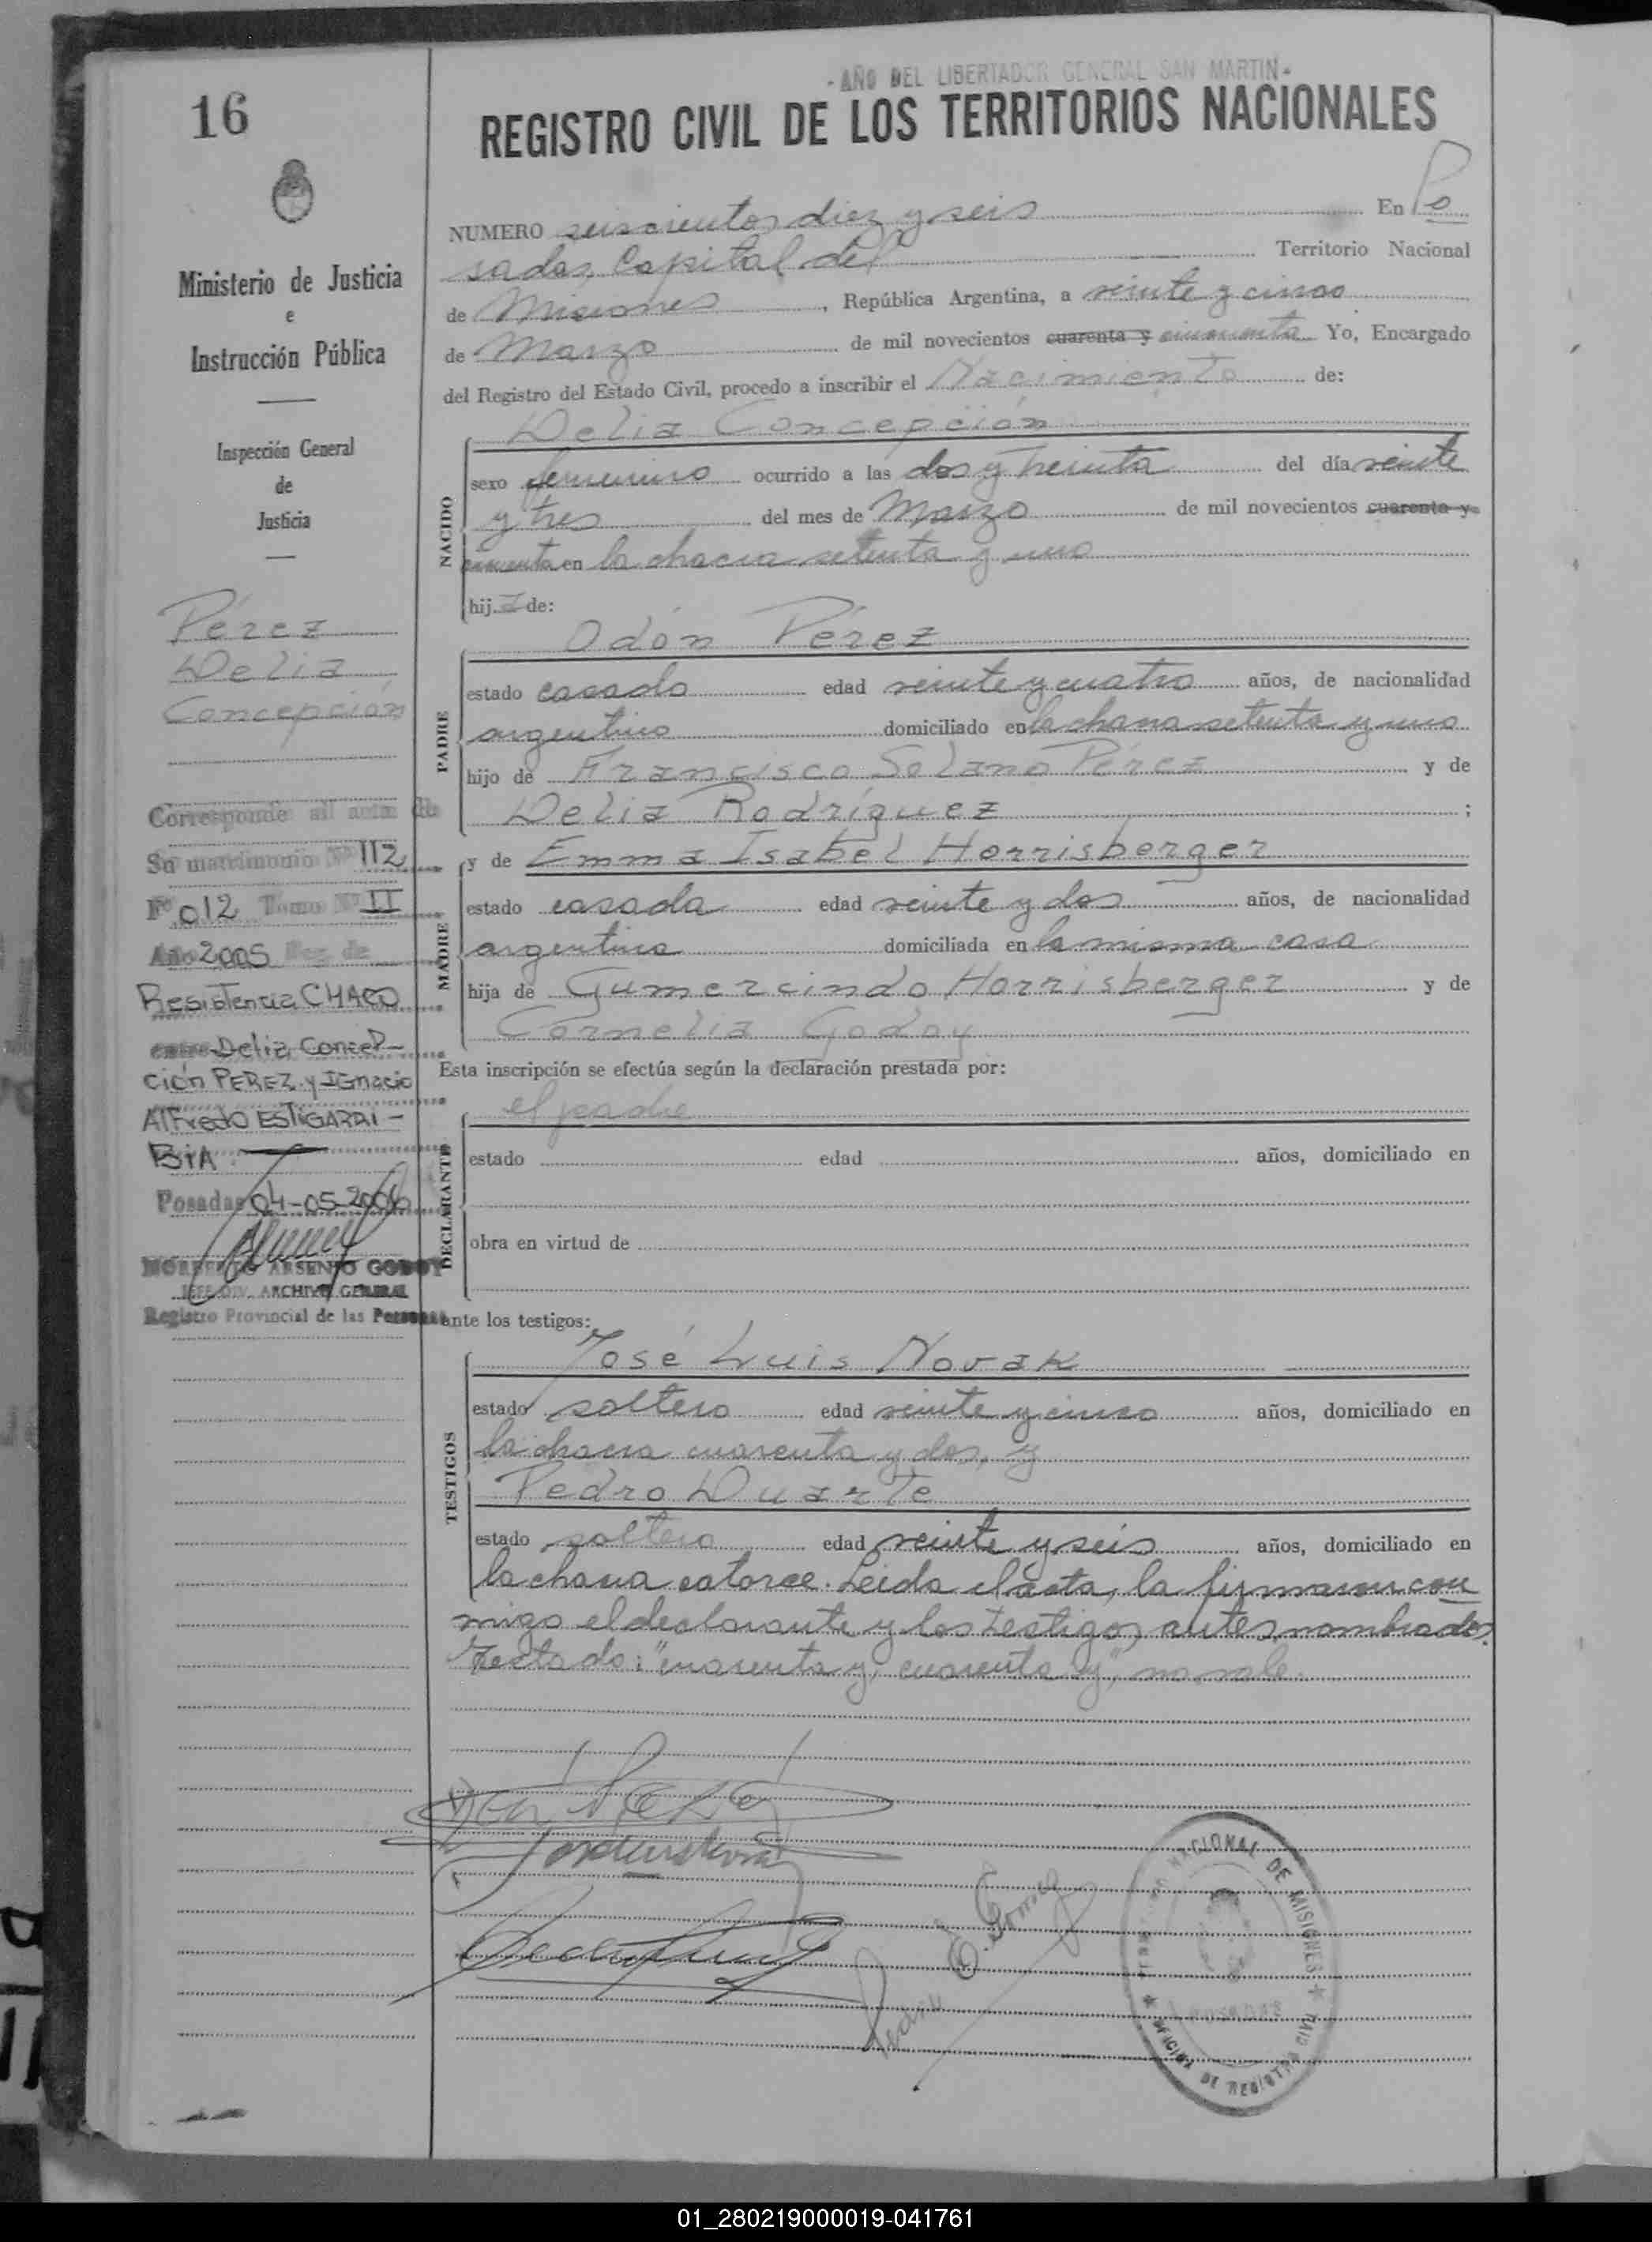 - AÑO DEL LIBERTADOR GENERAL SAN MARTIN -
16
REGISTRO CIVIL DE LOS TERRITORIOS NACIONALES
Ministerio de Justicia
e
Instrucción Pública
Inspección General
de
Justicia
Pérez
Delia
Concepción
Corresponde al acta de
Su matrimonio Nº 112
Fº 012 Tomo Nº II
Año 2005 Reg. de
Resistencia CHACO
entre Delia Concep-
ción PEREZ y IGnacio
AlFredo ESTIGARRI-
BIA
Posadas 04-05-2006
NORBERTO ARSENIO GODOY
JEFE DIV. ARCHIVO GENERAL
Registro Provincial de las Personas
NUMERO seiscientos diez y seis En Po
sadas, Capital del Territorio Nacional
de Misiones, República Argentina, a veinte y cinco
de Marzo de mil novecientos cuarenta y cincuenta Yo, Encargado
del Registro del Estado Civil, procedo a inscribir el Nacimiento de:
NACIDO
Delia Concepción
sexo femenino ocurrido a las dos y treinta del día veinte
y tres del mes de Marzo de mil novecientos cuarenta y
cincuenta en la chacra setenta y uno
hija de:
PADRE
Odón Pérez
estado casado edad veinte y cuatro años, de nacionalidad
argentino domiciliado en la chacra setenta y uno
hijo de Francisco Solano Pérez y de
Delia Rodríguez ;
MADRE
y de Emma Isabel Horrisberger
estado casada edad veinte y dos años, de nacionalidad
argentina domiciliada en la misma casa
hija de Gumercindo Horrisberger y de
Cornelia Godoy
Esta inscripción se efectúa según la declaración prestada por:
DECLARANTE
el padre
estado edad años, domiciliado en
obra en virtud de
ante los testigos:
TESTIGOS
José Luis Novak
estado soltero edad veinte y cinco años, domiciliado en
la chacra cuarenta y dos, y
Pedro Duarte
estado soltero edad veinte y seis años, domiciliado en
la chacra catorce. Leída el acta, la firmaron con
migo el declarante y los testigos antes nombrados.
Testado: "cuarenta y, cuarenta y", no vale.
NACIONAL DE MISIONES
POSADAS
OFICINA DE REGISTRO CIVIL
01_280219000019-041761